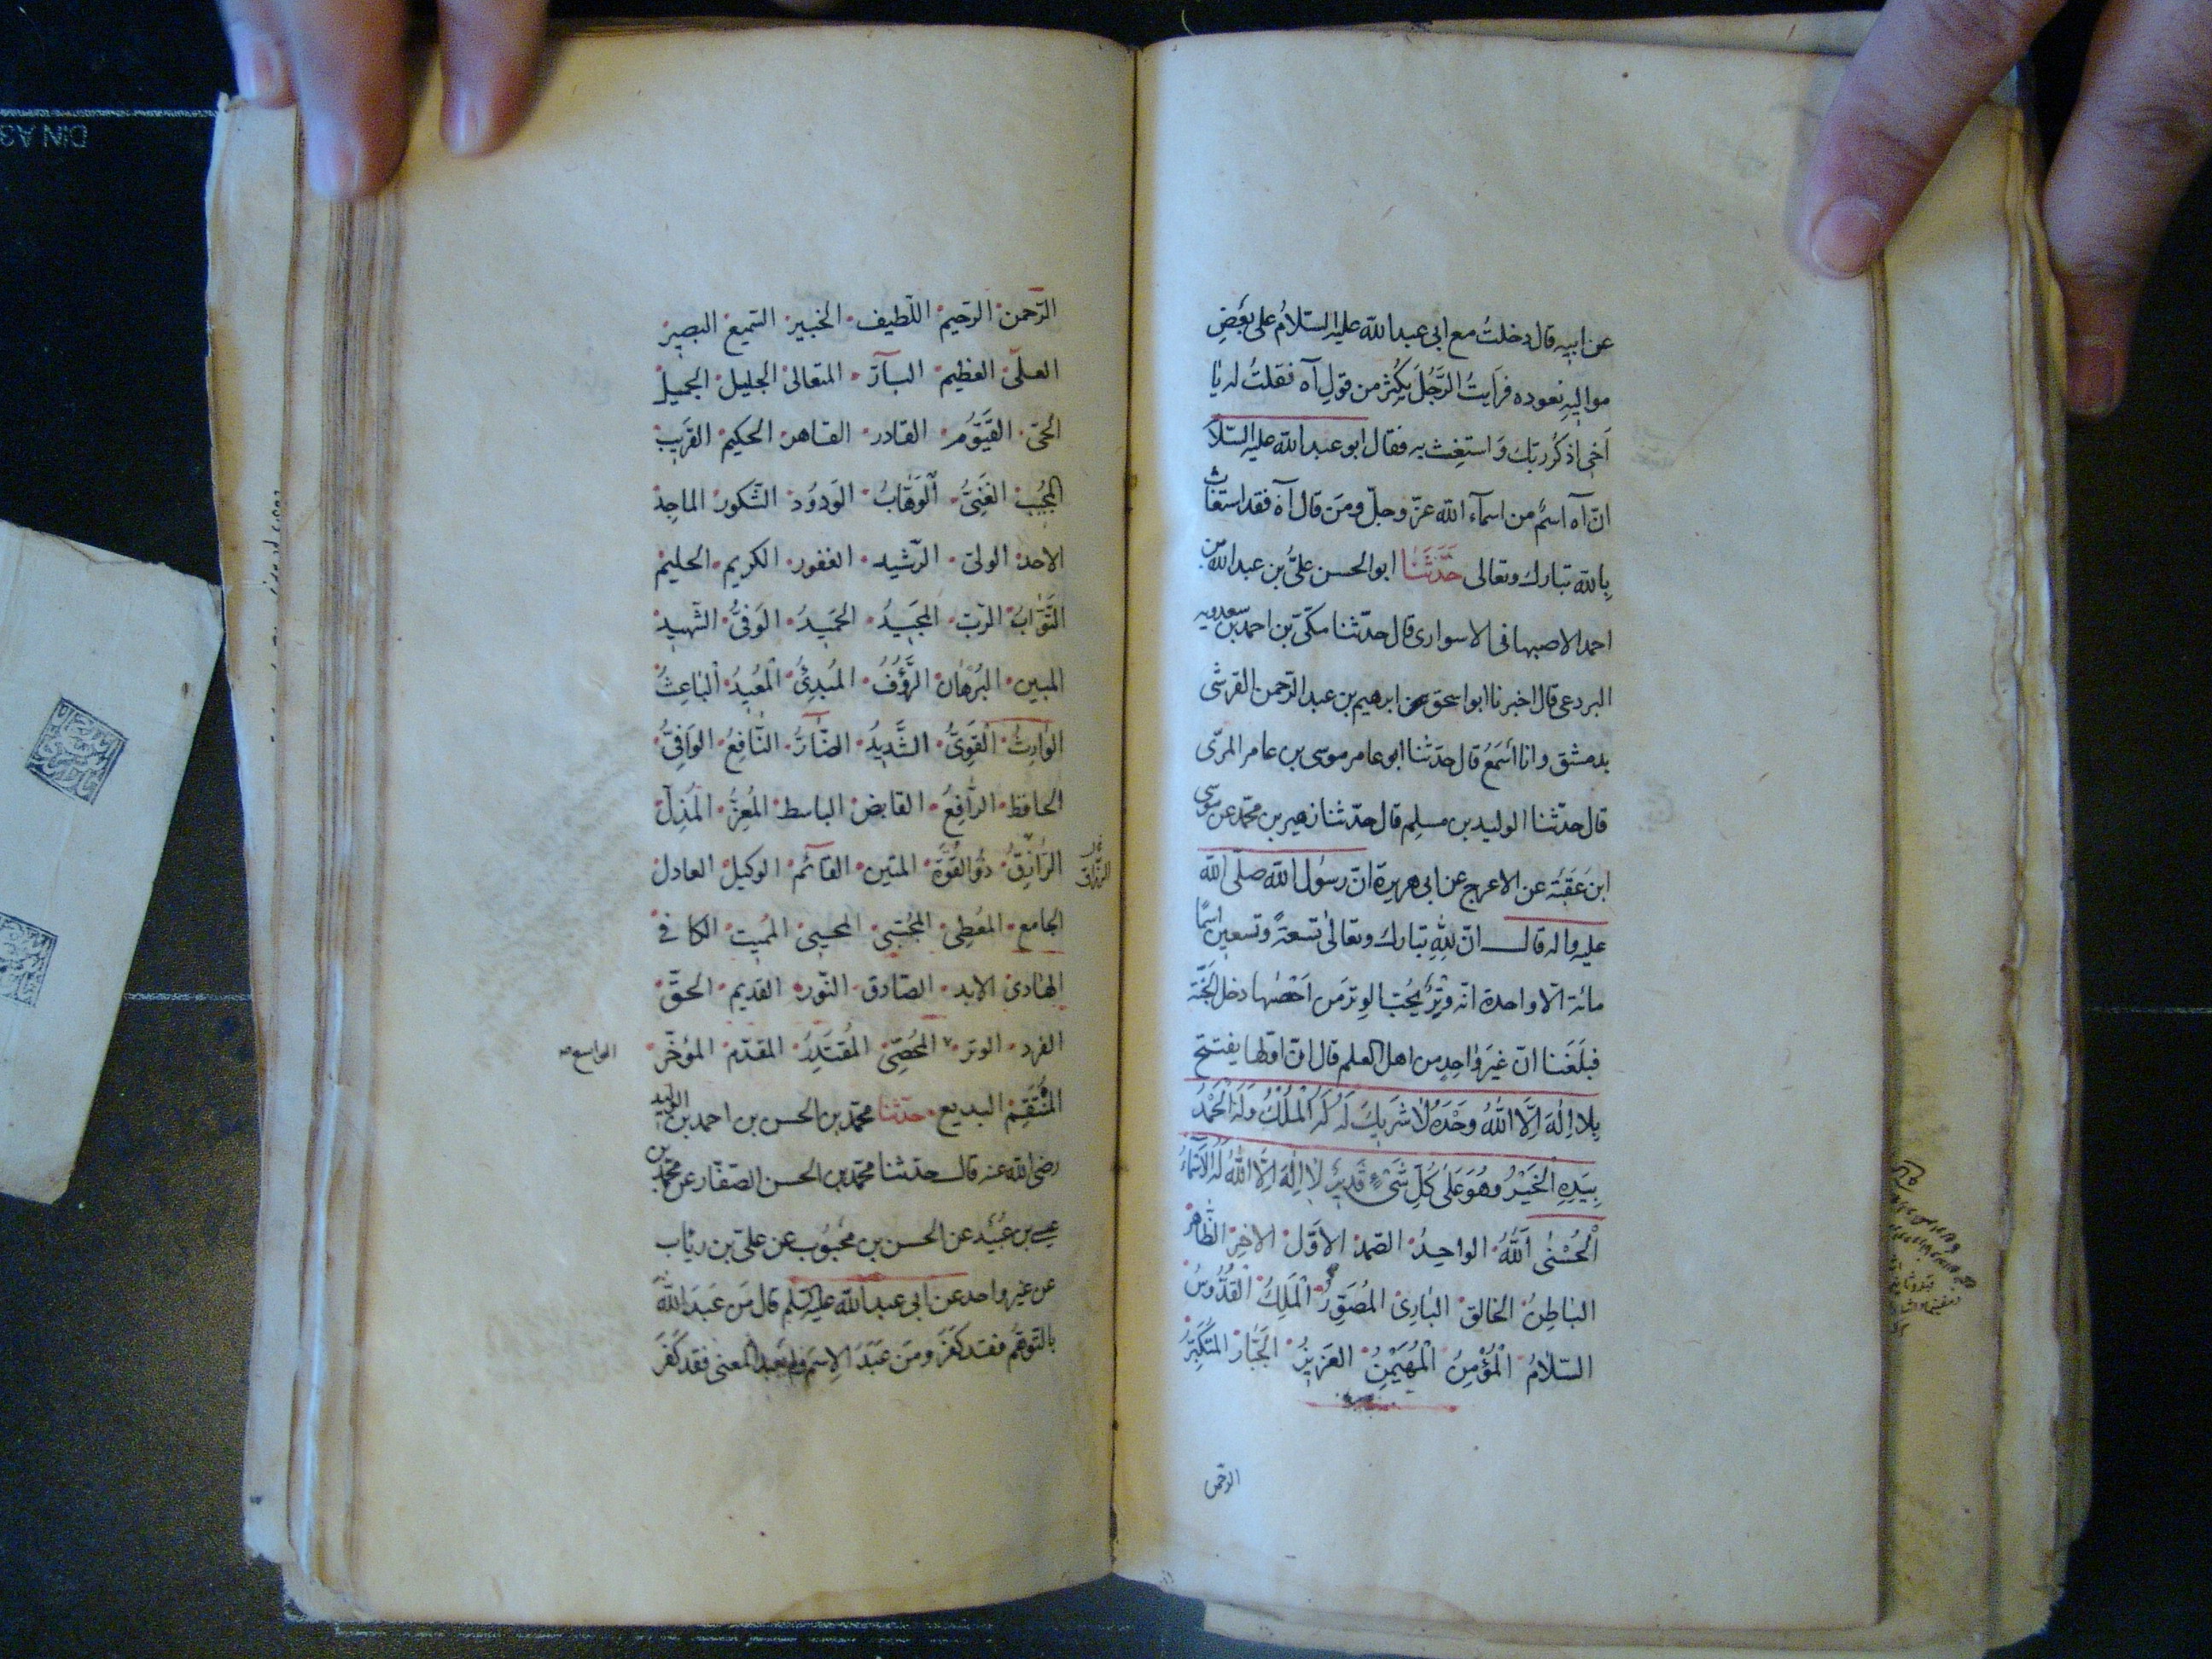 عن ابيه قال دخلتُ مع ابى عبدالله عليه السّلامُ على بعضِ
مواليهِ نعوده فرَايتُ الرَّجُلَ يُكثِرُ من قولِ آه فقلتُ له يٰا
اَخى اذكُر ربّك وَ استغِث به فقال ابو عبدالله عليه السّلا
انّ آه اسمٌ من اسمآء الله عزّ وجلّ ومَن قال آه فقد استغاث
بِالله تبارك وتعالى حَدَّثَنٰا ابو الحسن علىُّ بن عبدالله بن
احمد الاصبهانى الاسوارى قال حدّثنا مكىّ بن احمد بن سعدويه
البردعى قال اخبرنا ابو اسحق ابرهيم بن عبد الرّحمن القرشى
بدمشق وانا اَسمَعُ قال حدّثنا ابو عامر موسى بن عامر المرّى
قال حدّثنا الوليد بن مسلِم قال حدّثنا زهير بن محمّد عن موسى
ابن عَقَبَة عن الاعرج عن ابى هريرة انّ رسُول الله صلّى الله
عليه واله قال انّ لِلّهِ تبارك وتعالىٰ تسعةً وتسعين اسمًا
مائة الّا واحدة انّه وِترٌ يُحبّ الوِتر مَن اَحصٰىها دخل الجَنّة
فبلَغَنا انّ غيَر وٰاحِدٍ من اهل العلم قال انّ اوّلها يفتتح
بِلا اِلٰهَ اِلَّا اللّٰهُ وَحْدَهُ لاٰ شَريكَ لَهُ لَهُ الْمُلْكُ وَلَهُ الْحَمْدُ
بِيَدِهِ الْخَيْرُ وهُوَ عَلٰى كُلِّ شَىْءٍ قَديرٌ لاٰ اِلٰهَ اِلَّا اللّٰهُ لَهُ الْاَسْمٰآءُ
الْحُسْنٰى اَللّٰهُ الواحِدُ الصّمد الاَوَّل الاٰخِر الظّٰاهر
البٰاطِنُ الخالق البٰارِئ المُصَوِّرُ الْمَلِكُ الْقُدُّوسُ
السّلاٰمُ الْمُؤْمِنُ الْمُهَيْمِنُ العَزيزُ الجَبّٰار المُتَكَبِّرُ
الرّحمن
الرّحمن الرّحيم اللّطيف الخبير السّميع البصير
العلىّ العظيم البآرّ المتعالى الجليل الجميل
الحىّ القَيّوُم القادر القاهر الحكيم القريب
المجُيب الغَنِىُّ اَلْوَهّٰابُ الوَدوُد الشّكور الماجِد
الاحد الولىّ الرّشيد الغفور الكريم الحليم
التّوّٰابُ الرّبّ المجَيدُ الحَميدُ الوَفىُّ الشّهيد
المبين البُرهٰان الرَّؤُفُ المُبدِئُ الْمُعيدُ الْبٰاعِثُ
الوٰارِثُ الْقَوِىُّ الشَّديدُ الضّٰآرُّ النّٰافِعُ الوَافِىُّ
الحافظ الرّٰافِعُ القابض الباسط المُعِزُّ الْمُذِلّ
الرّٰازِقُ ذوُ القُوَّة المتين القآئم الوكيل العادل
الرّزّاق
الجامع المُعطِى المُجتبى المحيى المُميت الكافى
الهٰادى الابد الصّادق النّور القديم الحقّ
الفرد الوتر المُحصِى المُقتَدِرُ المقدّم المؤخّر
الواسع
المُنتَقِم البديع حدّثنا محمّد بن الحسن بن احمد بن الوليد
رضى الله عنه قال حدّثنا محمّد بن الحسن الصّفّار عن محمّد بن
عيسى بن عُبَيد عن الحسن بن محبُوب عن علىّ بن رئاب
عن غير واحد عن ابى عبدالله عليه السّلم قال مَن عَبَدَ اللّٰهَ
بالتّوهّم فقد كفَرَ ومَن عَبَدَ الاِسمَ ولم يَعبد المعنى فقد كَفَرَ